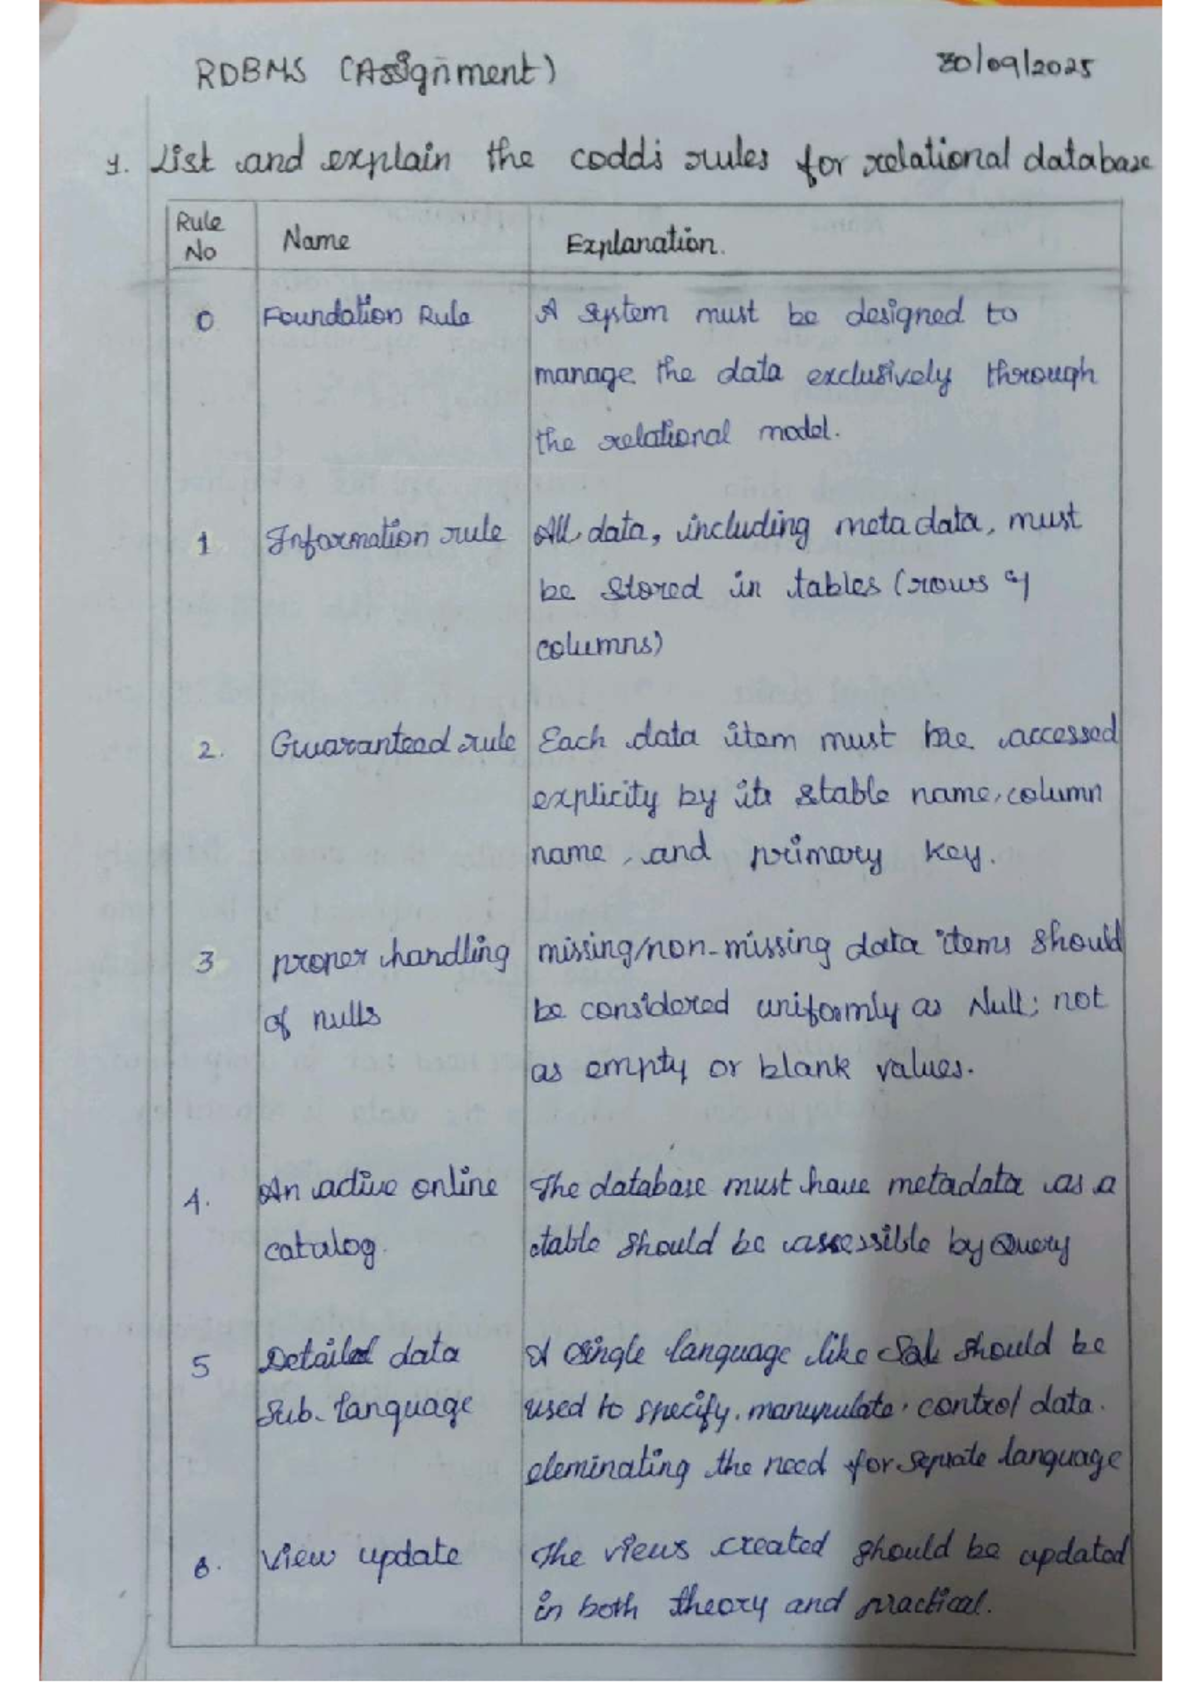 RDBMS (Assignment)
30/09/2025
1. List and explain the codd's rules for relational database
Rule No
Name
Explanation.
0
Foundation Rule
A system must be designed to
manage the data exclusively through
the relational model.
1
Information rule
All data, including meta data, must
be stored in tables (rows &
columns)
2.
Guaranteed rule
Each data item must be accessed
explicity by its stable name, column
name, and primary key.
3
proper handling
of nulls
missing/non-missing data items should
be considered uniformly as Null; not
as empty or blank values.
4.
An active online
catalog.
The database must have metadata as a
table should be assessible by Query
5
Detailed data
Sub-language
A single language like Sql should be
used to specify, manupulate, control data.
eleminating the need for seprate language
6.
View update
The views created should be updated
in both theory and practical.